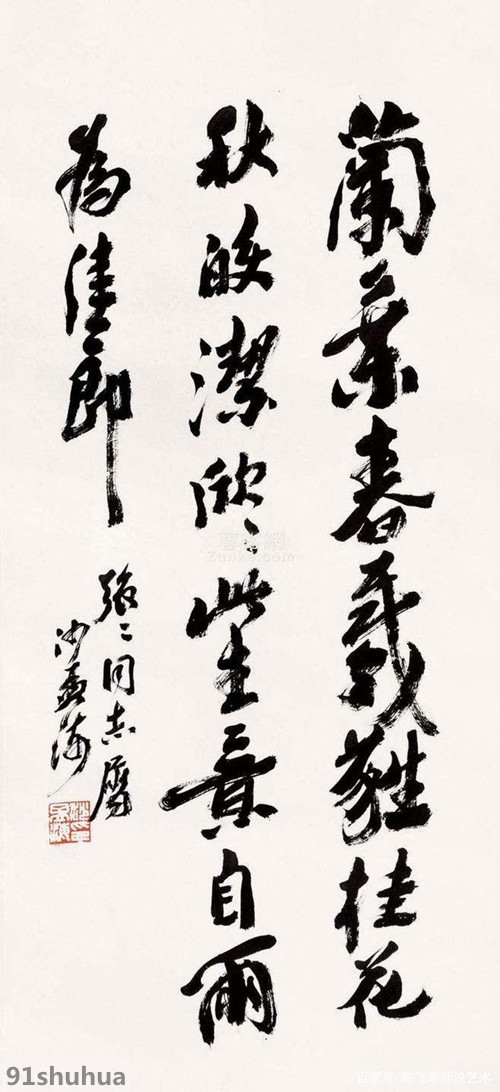 蘭葉春葳蕤桂花
秋皎潔欣〻此生意自爾
為佳節
同志屬
沙孟海
Zunke.com
91shuhua